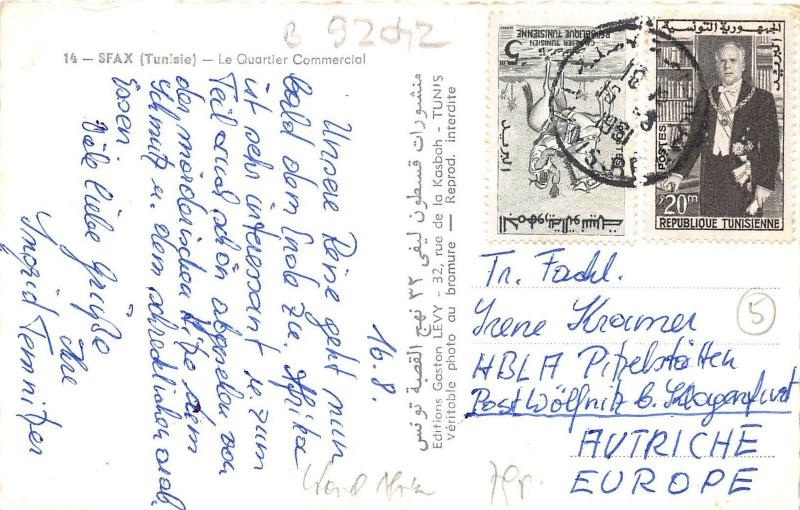 B 9202
14 — SFAX (Tunisie) — Le Quartier Commercial
16.8.
Unsere Reise geht nun
bald dem Ende zu. Afrika
ist sehr interessant u. zum
Teil auch schön abgesehen von
der mörderischen Hitze dem
Schmutz u. dem schrecklichen arab.
Essen.
Viele liebe Grüße
Ihre
Ingrid Temnitzer
منشورات قسطون ليفى ٣٢ نهج القصبة تونس
Editions Gaston LÉVY - 32, rue de la Kasbah - TUNIS
Véritable photo au bromure — Reprod. interdite
5
CAVALIER TUNISIEN
REPUBLIQUE TUNISIENNE
البريد
الجمهورية التونسية
الجمهورية التونسية
البريد
POSTES
20m
REPUBLIQUE TUNISIENNE
Fr. Fachl.
Irene Kramer
HBLA Pitzelstätten
Post Wölfnitz b. Klagenfurt
AUTRICHE
EUROPE
5
Nord Afrika